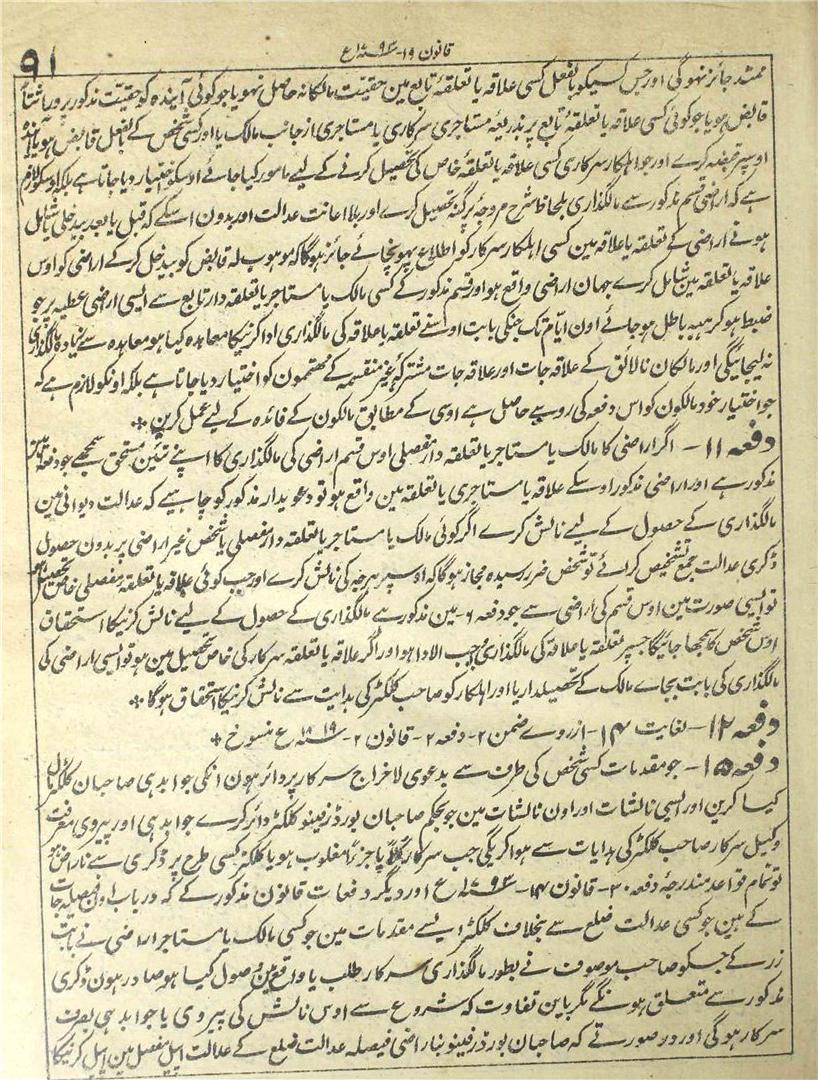 ۹۱
قانون ۱۹- ۱۷۹۳ع
ممتد جائز نہوگی اور جس کسیکو بالفعل کسی علاقہ یا تعلقۂ تابع مین حقیت مالکانہ حاصل نہو یا جو کوئی آیندہ کو حقیت مذکور پر وراثتاً
قابض ہو یا جو کوئی کسی علاقہ یا تعلقۂ تابع پر بذریعہ مستاجری سرکاری یا مستاجری از جانب مالک یا اور کسی شخص کے بالفعل قابض ہو یا آیندہ
اوسپر قبضہ کرے اور جو اہلکار سرکاری کسی علاقہ یا تعلقۂ خاص کی تحصیل کرنے کے لیے مامور کیا جائے اوسکو اختیار دیا جاتا ہے بلکہ اوسکو لازم
ہے کہ اراضی قسم مذکور سے مالگذاری بلحاظ شرح مروجۂ پرگنہ تحصیل کرے اور بلا اعانت عدالت اور بدون اسکے کہ قبل یا بعد بیدخلی یا شامل
ہونے اراضی کے تعلقہ یا علاقہ مین کسی اہلکار سرکار کو اطلاع پہونچائے جائز ہوگا کہ موہوب لہ قابض کو بیدخل کرکے اراضی کو اوس
علاقہ یا تعلقہ مین شامل کرے جہان اراضی واقع ہو اور قسم مذکور کے کسی مالک یا مستاجر یا تعلقہ دار تابع سے ایسی اراضی عطیہ پر جو
ضبط ہو کر ہبہ باطل ہو جائے اون ایام تک جنکی بابت اوسنے تعلقہ یا علاقہ کی مالگذاری ادا کرنیکا معاہدہ کیا ہو معاہدہ سے زیادہ مالگذاری
نہ لیجائیگی اور مالکان نالائق کے علاقہ جات اور علاقہ جات مشترکۂ غیر منقسمہ کے مہتممون کو اختیار دیا جاتا ہے بلکہ اونکو لازم ہے کہ
جو اختیار خود مالکون کو اس دفعہ کی رو سے حاصل ہے اوسی کے مطابق مالکون کے فائدہ کے لیے عمل کرین *
دفعہ ۱۱- اگر اراضی کا مالک یا مستاجر یا تعلقہ دار مفصلی اوس قسم اراضی کی مالگذاری کا اپنے تئین مستحق سمجھے جو دفعہ
مذکور ہے اور اراضی مذکور اوسکے علاقہ یا مستاجری یا تعلقہ مین واقع ہو تو دعویدار مذکور کو چاہیے کہ عدالت دیوانی مین
مالگذاری کے حصول کے لیے نالش کرے اگر کوئی مالک یا مستاجر یا تعلقہ دار مفصلی یا شخص غیر اراضی پر بدون حصول
ڈکری عدالت جمع تشخیص کرائے تو شخص ضرر رسیدہ مجاز ہوگا کہ اوسپر ہرجہ کی نالش کرے اور جب کوئی علاقہ یا تعلقہ مفصلی خاص تحصیل
تو ایسی صورت مین اوس قسم کی اراضی سے جو دفعہ ۶- مین مذکور ہے مالگذاری کے حصول کے لیے نالش کرنیکا استحقاق
اوس شخص کا سمجھا جائیگا جسپر تعلقہ یا علاقہ کی مالگذاری واجب الادا ہو اور اگر علاقہ یا تعلقہ سرکار کی خاص تحصیل مین ہو تو ایسی اراضی کی
مالگذاری کی بابت بجاے مالک کے تحصیلدار یا اور اہلکار کو صاحب کلکٹر کی ہدایت سے نالش کرنیکا استحقاق ہوگا *
دفعہ ۱۲- لغایت ۱۴- از روے ضمن ۲- دفعہ ۲- قانون ۲- ۱۸۱۹ع منسوخ *
دفعہ ۱۵- جو مقدمات کسی شخص کی طرف سے بدعوی لاخراج سرکار پر دائر ہون انکی جوابدہی صاحبان کلکٹر مال
کیا کرین اور ایسی نالشات اور اون نالشات مین جو بحکم صاحبان بورڈ رِفینیو کلکٹر دائر کرے جوابدہی اور پیروی بمعرفت
وکیل سرکار صاحب کلکٹر کی ہدایات سے ہوا کریگی جب سرکار کلاً یا جزءاً مغلوب ہو یا کلکٹر کسی طرح پر ڈکری سے ناراض ہو
تو تمام قواعد مندرجۂ دفعہ ۳۰- قانون ۱۴- ۱۷۹۳ع اور دیگر دفعات قانون مذکور کے کہ در باب اون فیصلہ جات
کے ہین جو کسی عدالت ضلع سے بخلاف کلکٹر ایسے مقدمات مین جو کسی مالک یا مستاجر اراضی نے بابت
زر کے جسکو صاحب موصوف نے بطور مالگذاری سرکار طلب یا واقع مین وصول کیا ہو صادر ہون ڈکری
مذکور سے متعلق ہونگے مگر باین تفاوت کہ شروع سے اوس نالش کی پیروی یا جوابدہی بصرف
سرکار ہوگی اور در صورتے کہ صاحبان بورڈ رفینیو بناراضی فیصلہ عدالت ضلع کے عدالت اپیل مفصل مین اپیل کرنیکا